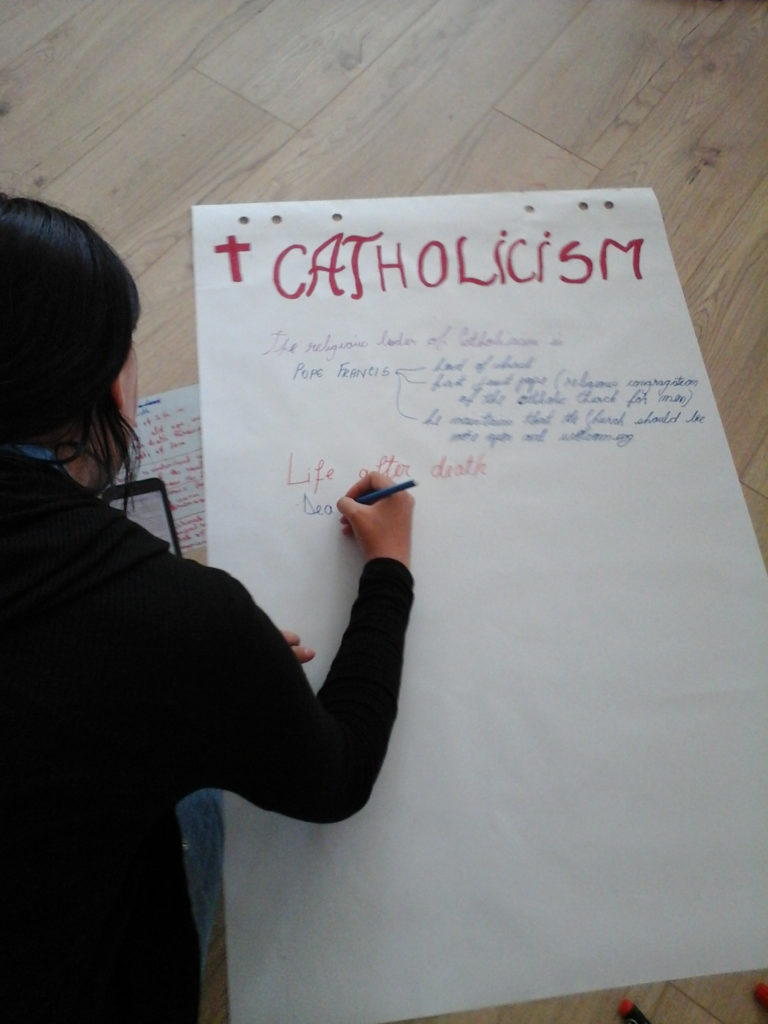 ✝ CATHOLiCiSM
The religious leader of Catholicism is
POPE FRANCIS
head of church
first jesuit pope (religious congragation
of the catholic church for men)
he maintains that the Church should be
more open and welcoming
Life after death
Dea